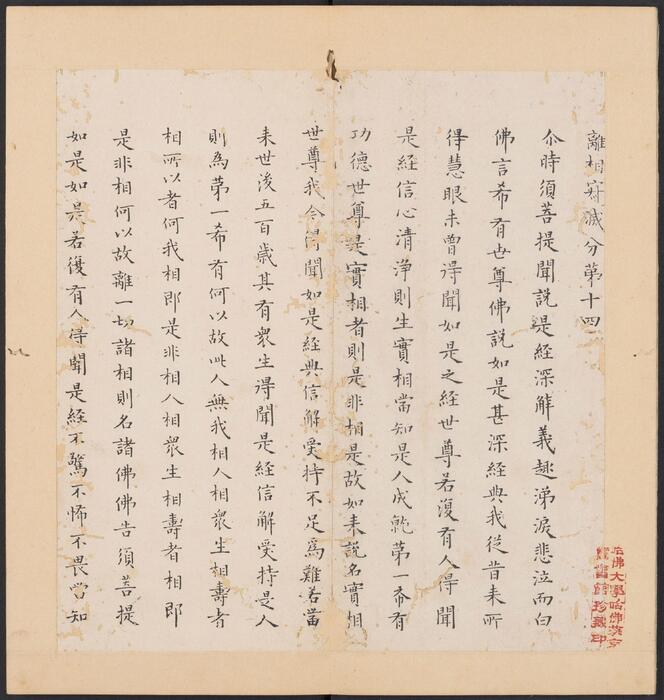 離相寂滅分第十四
尒時須菩提聞說是經深解義趣涕淚悲泣而白
佛言希有世尊佛說如是甚深經典我從昔来所
得慧眼未曾得聞如是之經世尊若復有人得聞
是經信心清淨則生實相當知是人成就第一希有
功德世尊是實相者則是非相是故如来說名實相
世尊我今得聞如是經典信解受持不足爲難若當
来世後五百歲其有衆生得聞是經信解受持是人
則為第一希有何以故此人無我相人相衆生相壽者
相所以者何我相即是非相人相衆生相壽者相即
是非相何以故離一切諸相則名諸佛佛告須菩提
如是如是若復有人得聞是經不驚不怖不畏當知
哈佛大學哈佛燕京
圖書館珍藏印